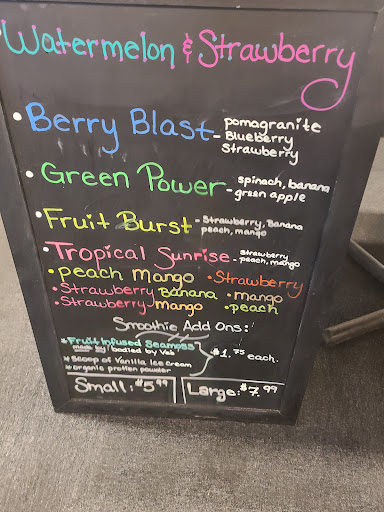 Watermelon & Strawberry
• Berry Blast - pomagranite
Blueberry
Strawberry
• Green Power - spinach, banana
green apple
• Fruit Burst - Strawberry, Banana
peach, mango
• Tropical Sunrise - strawberry
peach, mango
• peach mango • Strawberry
• Strawberry Banana • mango
• Strawberry mango • peach
Smoothie Add Ons:
* Fruit Infused Seamoss
made by / bodied by Vee
* scoop of Vanilla Ice cream
* organic protien powder
$1.75 each.
Small: $5.99 Large: $7.99